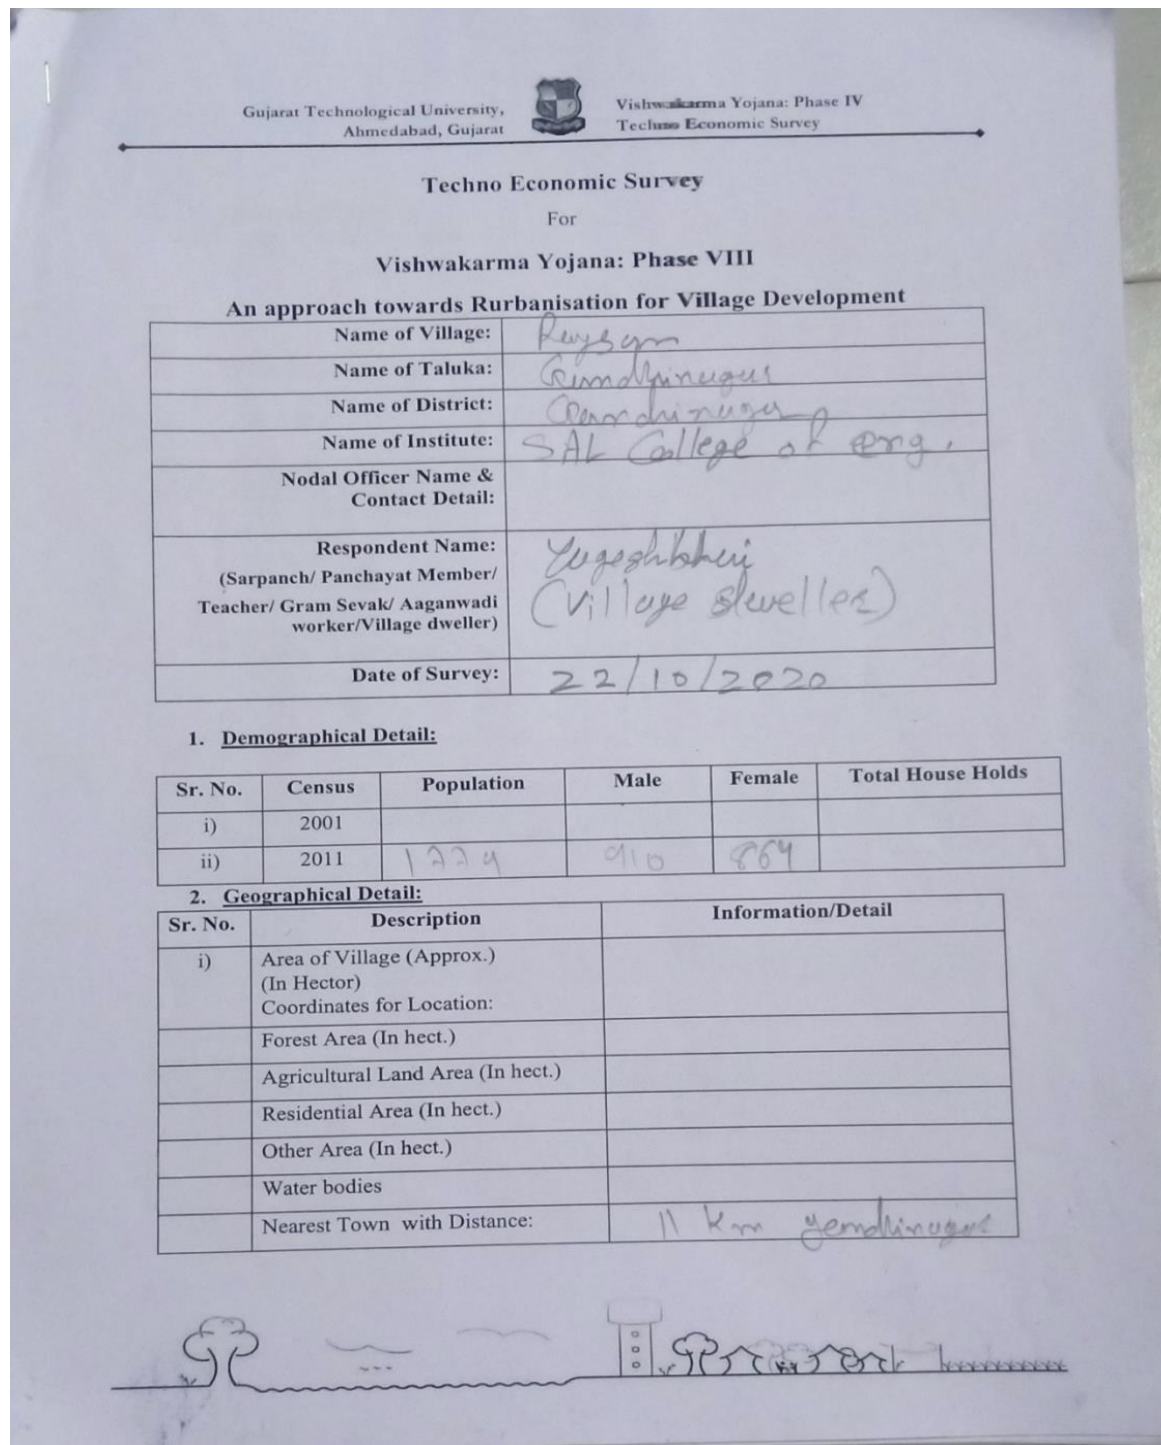 Gujarat Technological University,
Ahmedabad, Gujarat
Vishwakarma Yojana: Phase IV
Techno Economic Survey
Techno Economic Survey
For
Vishwakarma Yojana: Phase VIII
An approach towards Rurbanisation for Village Development
Name of Village: Raysan
Name of Taluka: Gandhinagar
Name of District: Gandhinagar
Name of Institute: SAL College of eng.
Nodal Officer Name &
Contact Detail:
Respondent Name: Yogeshbhai
(Sarpanch/ Panchayat Member/
Teacher/ Gram Sevak/ Aaganwadi (Village dweller)
worker/Village dweller)
Date of Survey: 22/10/2020
1. Demographical Detail:
Sr. No. Census Population Male Female Total House Holds
i) 2001
ii) 2011 1774 910 864
2. Geographical Detail:
Sr. No. Description Information/Detail
i) Area of Village (Approx.)
(In Hector)
Coordinates for Location:
Forest Area (In hect.)
Agricultural Land Area (In hect.)
Residential Area (In hect.)
Other Area (In hect.)
Water bodies
Nearest Town with Distance: 11 Km gandhinagar